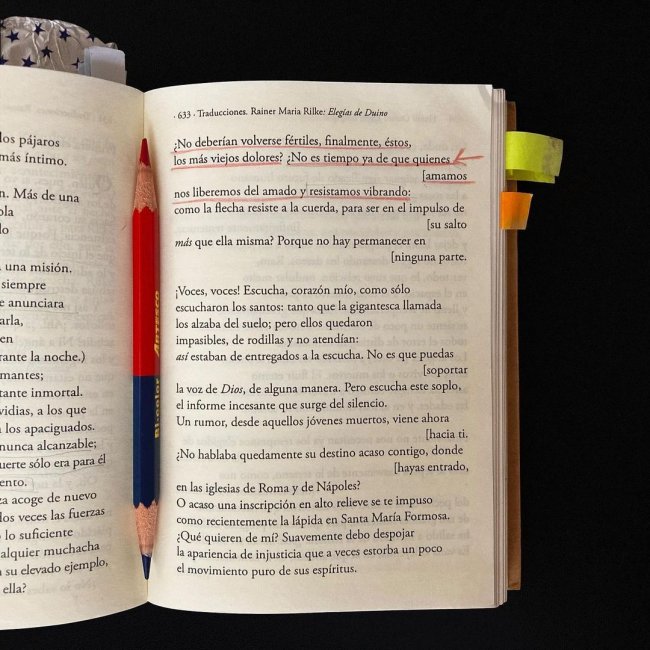 los pájaros
más íntimo.
n. Más de una
ola
do
a una misión.
siempre
e anunciara
arla,
en
rante la noche.)
mantes;
tante inmortal.
vidias, a los que
los apaciguados.
nunca alcanzable;
uerte sólo era para él
ento.
za acoge de nuevo
dos veces las fuerzas
o lo suficiente
alquier muchacha
a su elevado ejemplo,
ella?
Bi-color ARTESCO
· 633 · Traducciones. Rainer Maria Rilke: Elegías de Duino
¿No deberían volverse fértiles, finalmente, éstos,
los más viejos dolores? ¿No es tiempo ya de que quienes
[amamos
nos liberemos del amado y resistamos vibrando:
como la flecha resiste a la cuerda, para ser en el impulso de
[su salto
más que ella misma? Porque no hay permanecer en
[ninguna parte.
¡Voces, voces! Escucha, corazón mío, como sólo
escucharon los santos: tanto que la gigantesca llamada
los alzaba del suelo; pero ellos quedaron
impasibles, de rodillas y no atendían:
así estaban de entregados a la escucha. No es que puedas
[soportar
la voz de Dios, de alguna manera. Pero escucha este soplo,
el informe incesante que surge del silencio.
Un rumor, desde aquellos jóvenes muertos, viene ahora
[hacia ti.
¿No hablaba quedamente su destino acaso contigo, donde
[hayas entrado,
en las iglesias de Roma y de Nápoles?
O acaso una inscripción en alto relieve se te impuso
como recientemente la lápida en Santa María Formosa.
¿Qué quieren de mí? Suavemente debo despojar
la apariencia de injusticia que a veces estorba un poco
el movimiento puro de sus espíritus.